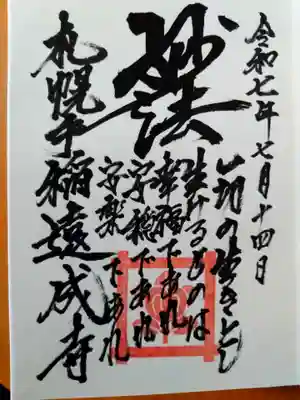 令和七年七月十四日
妙法
一切の生きとし
生けるものは
幸福であれ
安穏であれ
安楽であれ
札幌手稲遠成寺